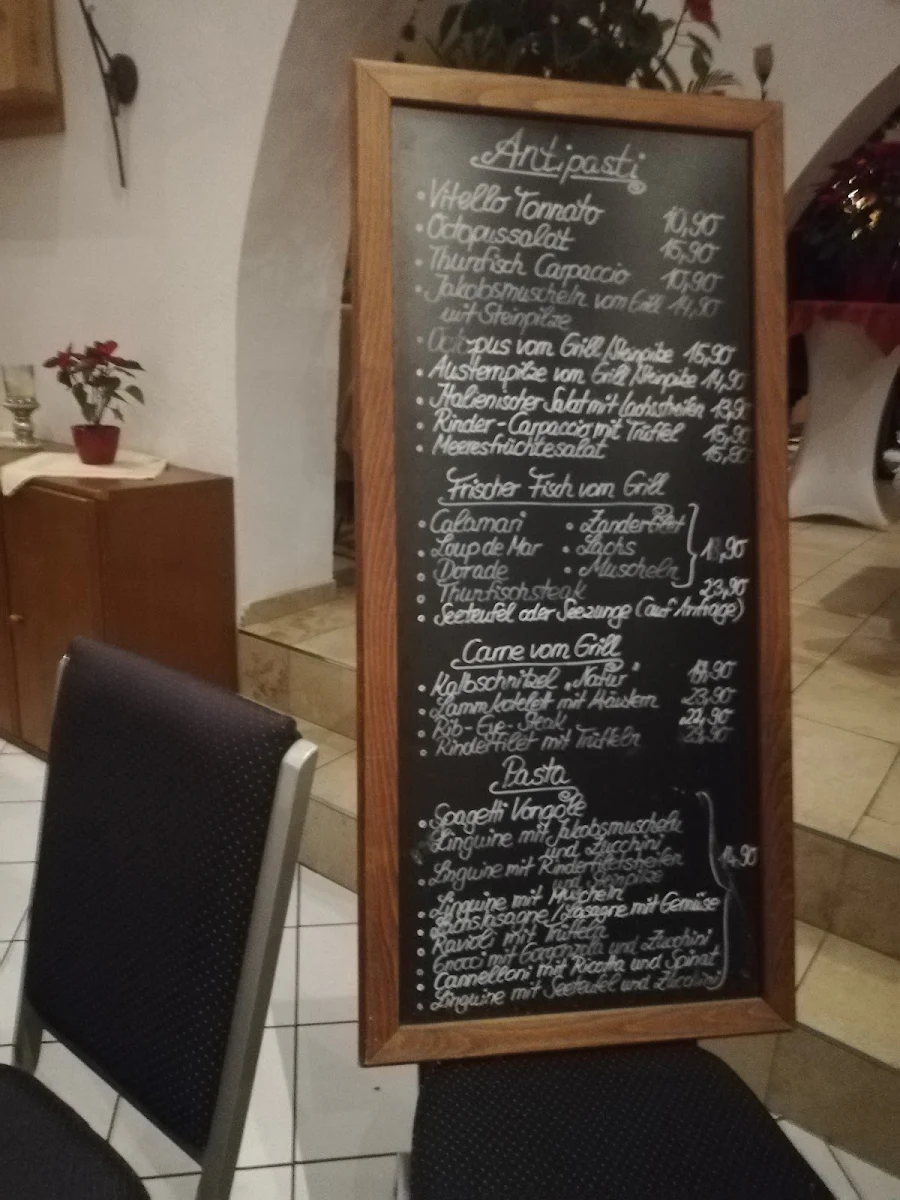 Antipasti
• Vitello Tonnato 10,90
• Octopussalat 15,90
• Thunfisch Carpaccio 10,90
• Jakobsmuscheln vom Grill 14,90
mit Steinpilze
• Octopus vom Grill/Steinpilze 15,90
• Austernpilze vom Grill/Steinpilze 14,90
• Italienischer Salat mit Lachsstreifen 13,90
• Rinder-Carpaccio mit Trüffel 15,90
• Meeresfrüchtesalat 15,80
Frischer Fisch vom Grill
• Calamari • Zanderfilet
• Loup de Mar • Lachs ,90
• Dorade • Muscheln
• Thunfischsteak 23,90
• Seeteufel oder Seezunge (auf Anfrage)
Carne vom Grill
• Kalbschnitzel „Natur" ,90
• Lammkotelett mit Kräutern 23,90
• Rib-Eye-Steak 22,90
• Rinderfilet mit Trüffeln 23,90
Pasta
• Spagetti Vongole
• Linguine mit Jakobsmuscheln
und Zucchini
• Linguine mit Rinderfiletstreifen 14,90
und Steinpilze
• Linguine mit Muscheln
• Lachslasagne/Lasagne mit Gemüse
• Ravioli mit Trüffeln
• Gnocci mit Gorgonzola und Zucchini
• Cannelloni mit Ricotta und Spinat
• Linguine mit Seeteufel und Zucchini